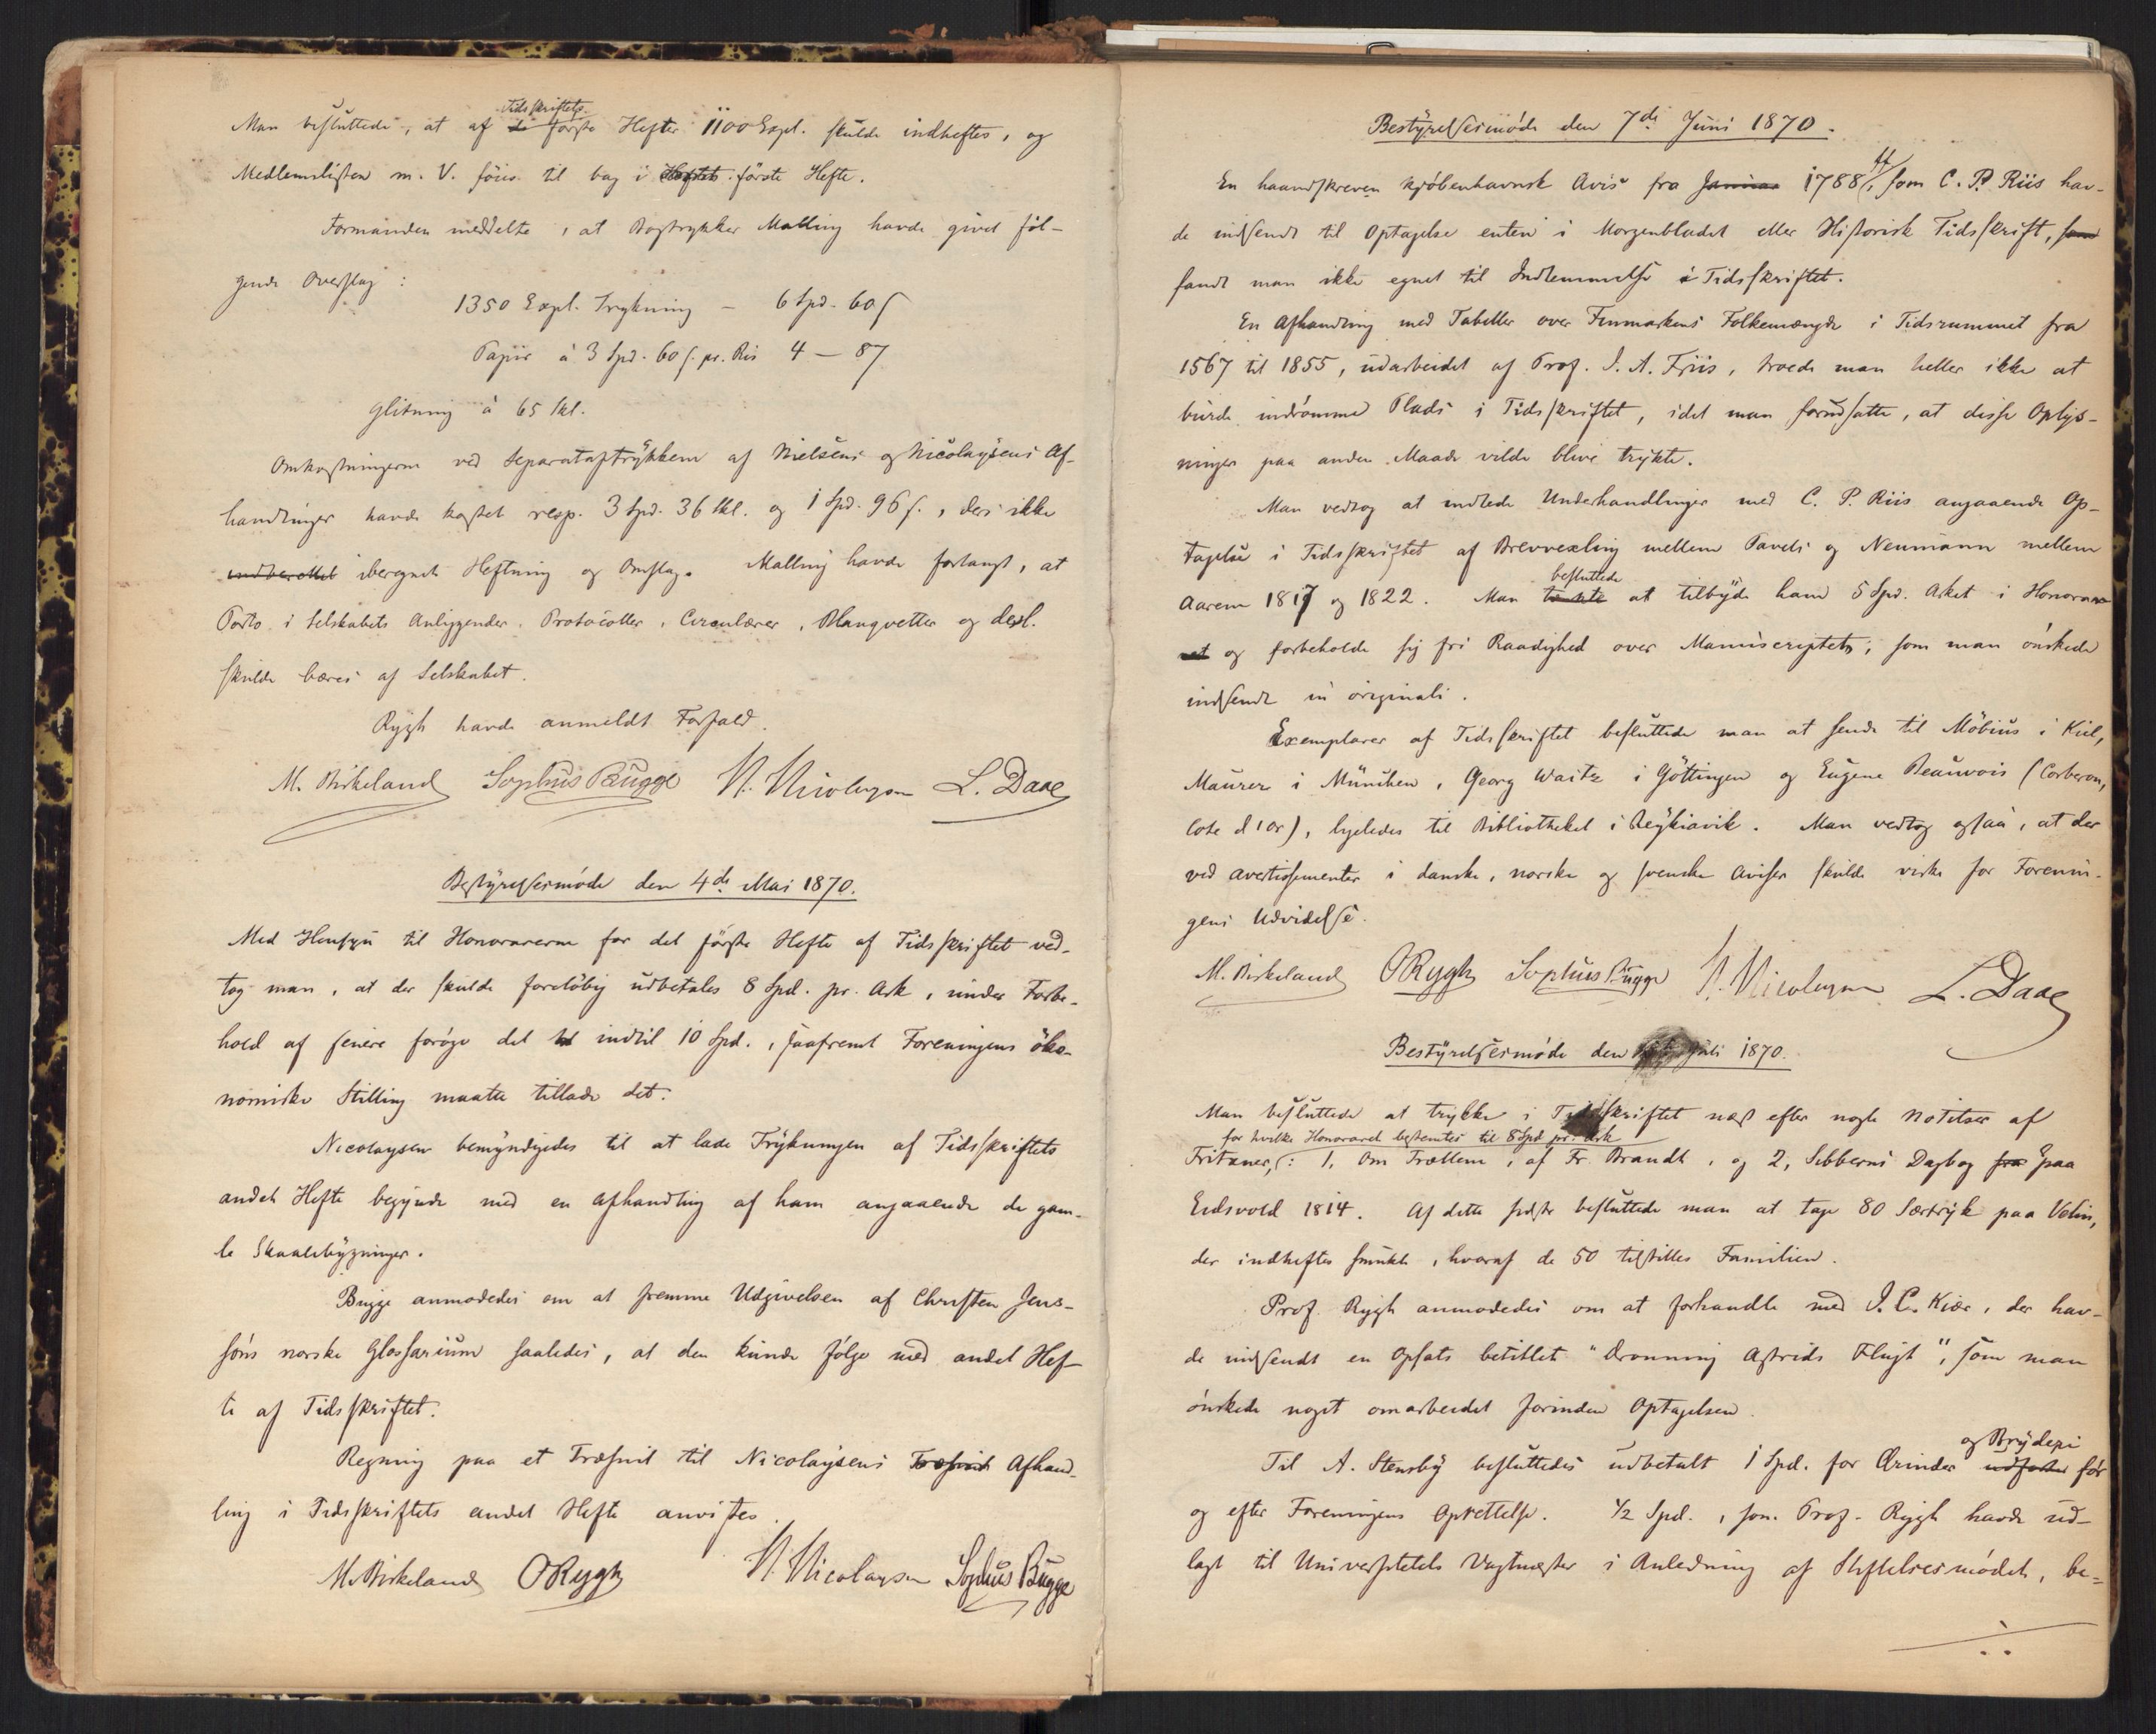 Man besluttede, at af Tidsskriftets
de første Hefter 1100 Expl. skulde indheftes, og
Medlemslisten m. V. föies til bag i Heftet förste Hefte.
Formanden meddelte, at Bogtrykker Malling havde givet föl-
gende Overslag:
1350 Expl. Trykning – 6 Spd. 60 ſ
Papir à 3 Spd. 60 ſ. pr. Ris 4 – 87
Glitning à 65 Skl.
Omkostningerne ved Separataftrykkene af Nielsens og Nicolaysens Af-
handlinger havde kostet resp. 3 Spd. 36 Skl. og 1 Spd. 96 ſ., deri ikke
indberettet iberegnet Heftning og Omslag. Malling havde forlangt, at
Porto i Selskabets Anliggender, Protocoller, Circulærer, Blanqvetter og desl.
skulde bæres af Selskabet.
Rygh havde anmeldt Forfald.
M. Birkeland Sophus Bugge N. Nicolaysen L. Daae
Bestyrelsesmöde den 4de Mai 1870.
Med Hensyn til Honorarerne for det förste Hefte af Tidsskriftet ved-
tog man, at der skulde forelöbig udbetales 8 Spd. pr. Ark, under Forbe-
hold af senere foröge det til indtil 10 Spd., saafremt Foreningens öko-
nomiske Stilling maatte tillade det.
Nicolaysen bemyndigedes til at lade Trykningen af Tidsskriftets
andet Hefte begynde med en Afhandling af ham angaaende de gam-
le Skaalebygninger.
Bugge anmodedes om at fremme Udgivelsen af Christen Jens-
söns norske Glossarium saaledes, at den kunde fölge med andet Hef-
te af Tidsskriftet.
Regning paa et Træsnit til Nicolaysens Træsnit Afhand-
ling i Tidsskriftets andet Hefte anvistes.
M. Birkeland O Rygh N. Nicolaysen Sophus Bugge
Bestyrelsesmöde den 7de Juni 1870.
En haandskreven kjöbenhavnsk Avis fra Januar 1788, som C. P. Riis hav-
de indsendt til Optagelse enten i Morgenbladet eller Historisk Tidsskrift, som
fandt man ikke egnet til Indlemmelse i Tidsskriftet.
En Afhandling med Tabeller over Finmarkens Folkemængde i Tidsrummet fra
1567 til 1855, udarbeidet af Prof. J. A. Friis, troede man heller ikke at
burde indrömme Plads i Tidsskriftet, idet man forudsatte, at disse Oplys-
ninger paa anden Maade vilde blive trykte.
Man vedtog at indlede Underhandlinger med C. P. Riis angaaende Op-
tagelse i Tidsskriftet af Brevvexling mellem Pavels og Neumann mellem
Aarene 1817 og 1822. Man besluttede at tilbyde ham 5 Spd. Arket i Honorar
et og forbeholde sig fri Raadighed over Manuscriptet, som man önskede
indsendt in originali.
Exemplarer af Tidsskriftet besluttede man at sende til Möbius i Kiel,
Maurer i München, Georg Waitz i Göttingen og Eugene Beauvois (Corberon,
Cote d'or), ligeledes til Bibliotheket i Reykiavik. Man vedtog ogsaa, at der
ved Avertissementer i danske, norske og svenske Aviser skulde virke for Forenin-
gens Udvidelse.
M. Birkeland O Rygh Sophus Bugge N. Nicolaysen L. Daae
Bestyrelsesmöde den Juli 1870.
Man besluttede at trykke i Tidsskriftet næst efter nogle Notitser af
for hvilke Honoraret bestemtes til 8 Spd pr. Ark
Fritzner,: 1, Om Trællene, af Fr. Brandt, og 2, Sibberns Dagbog fra paa
Eidsvold 1814. Af dette sidste besluttede man at tage 80 Særtryk paa Velin,
der indheftes smukt, hvoraf de 50 tilstilles Familien.
Prof. Rygh anmodedes om at forhandle med J. C. Kiær, der hav-
de indsendt en Opsats betitlet "Dronning Astrids Flugt", som man
önskede noget omarbeidet forinden Optagelsen.
og Bryderi
Til A. Stensby besluttedes udbetalt 1 Spd. for Ærinder udförte för
og efter Foreningens Oprettelse. 1/2 Spd., som Prof. Rygh havde ud-
lagt til Universitetets Vagtmester i Anledning af Stiftelsesmödet, be-